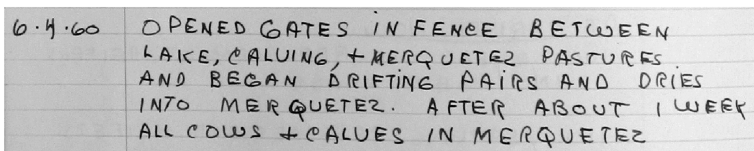 6.4.60 OPENED GATES IN FENCE BETWEEN
LAKE, CALVING, + MERQUETEZ PASTURES
AND BEGAN DRIFTING PAIRS AND DRIES
INTO MERQUETEZ. AFTER ABOUT 1 WEEK
ALL COWS + CALVES IN MERQUETEZ